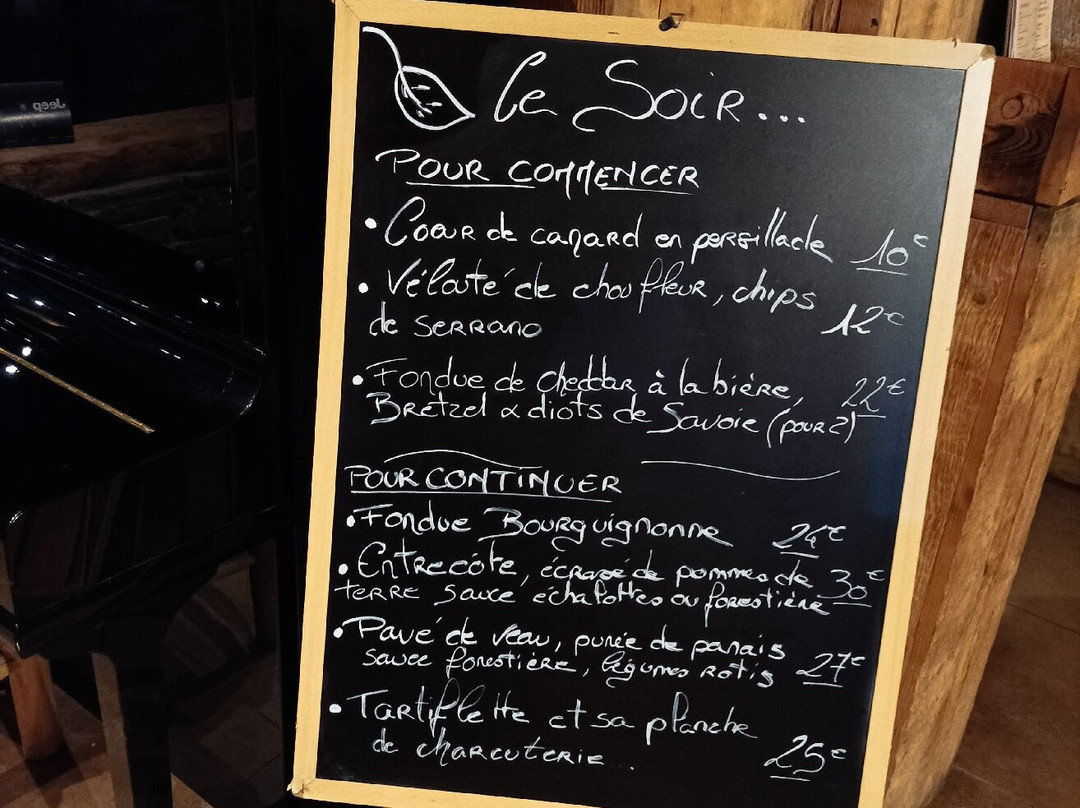 Ce Soir...
POUR COMMENCER
• Cœur de canard en persillade 10€
• Vélouté de chouffleur, chips
de SERRANO 12€
• Fondue de cheddar à la bière, 22€
Bretzel & diots de Savoie (pour 2)
POUR CONTINUER
• Fondue Bourguignonne 24€
• Entrecôte, écrasé de pommes de 30€
terre sauce échalottes ou forestière
• Pavé de veau, purée de panais
sauce forestière, légumes rotis 27€
• Tartiflette et sa planche
de charcuterie... 25€
Jeep